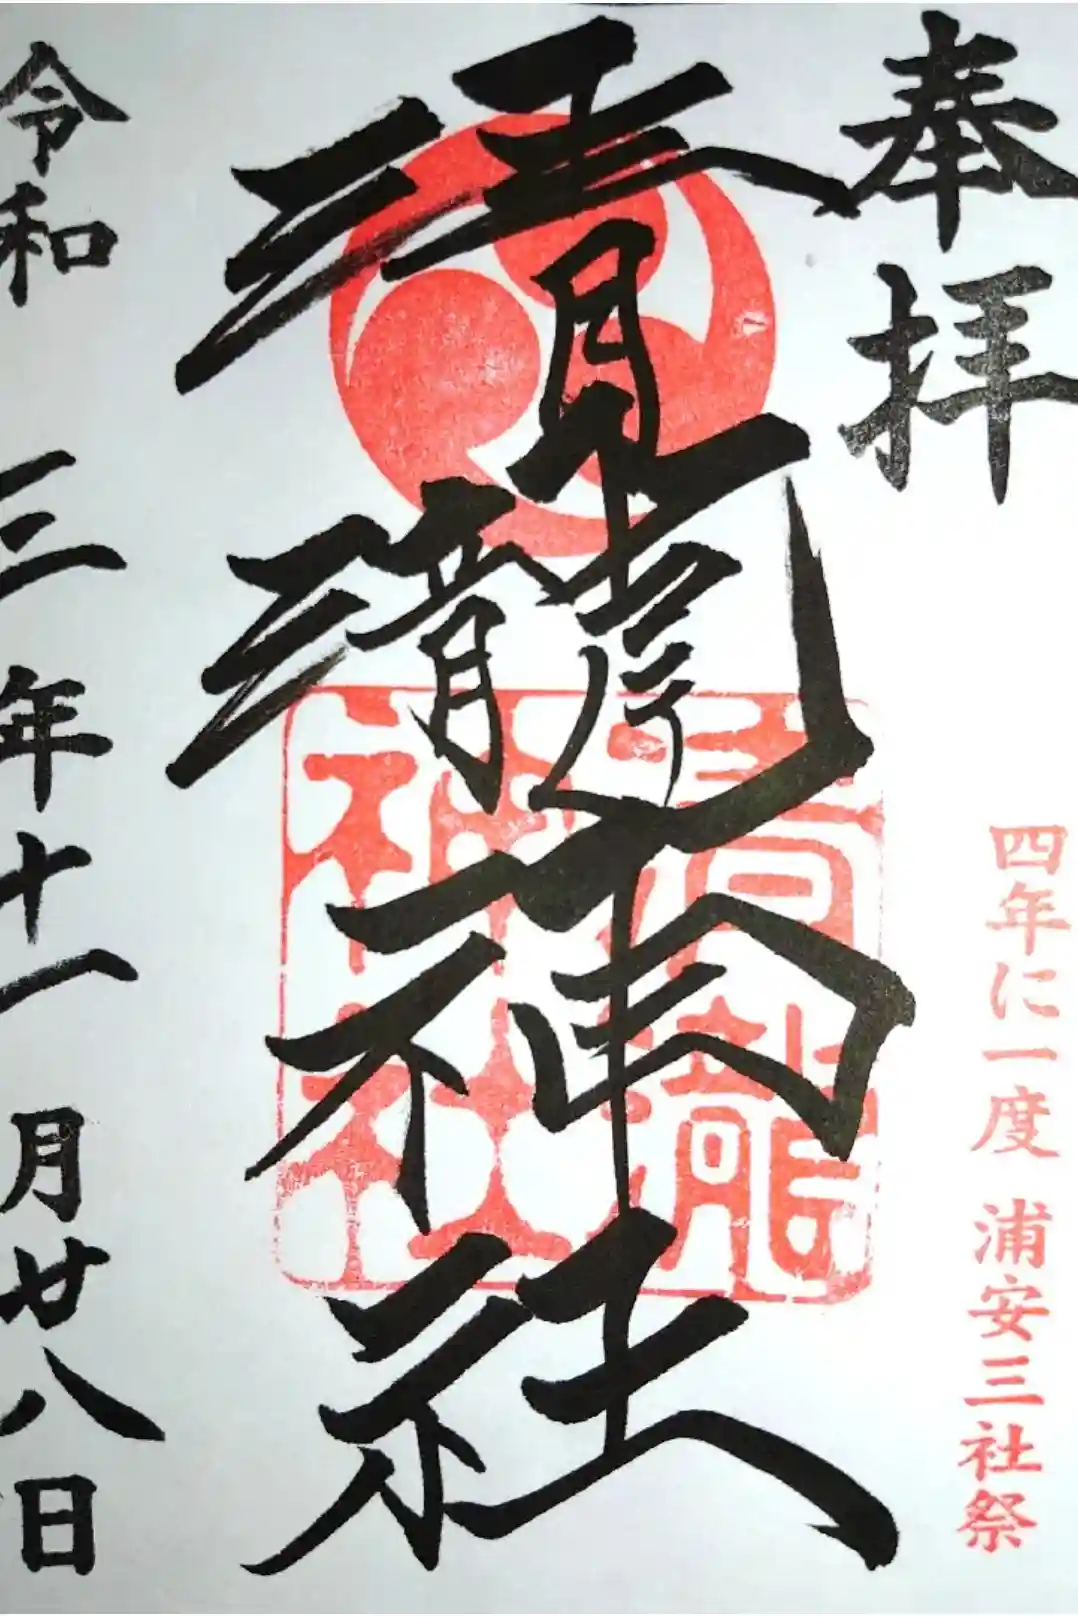 奉拝
四年に一度 浦安三社祭
清瀧神社
令和三年十一月廿八日